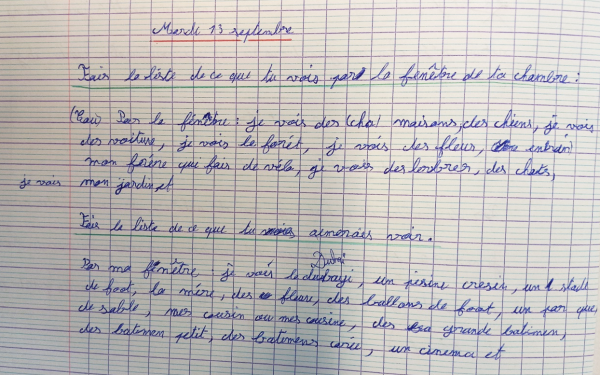 Mardi 13 septembre
Fais la liste de ce que tu vois par la fenêtre de ta chambre :
Par la fenêtre : je vois des (cha) maisons, des chiens, je vois
des voiture, je vois la forêt, je vois des fleur, entrain
mon frère que fais de vélo, je vois des lombres, des chats,
je vois mon jardin, et
Fais la liste de ce que tu aimerais voir.
Dubaï
Par ma fenêtre je vois le dubayi, un pisine cresin, un stade
de foot, la mére, des fleure, des ballons de foot, un par que
de sable, mes cousin ou mes cousine, des grande batimen,
des batimen petit, des batimens carie, un cinema et